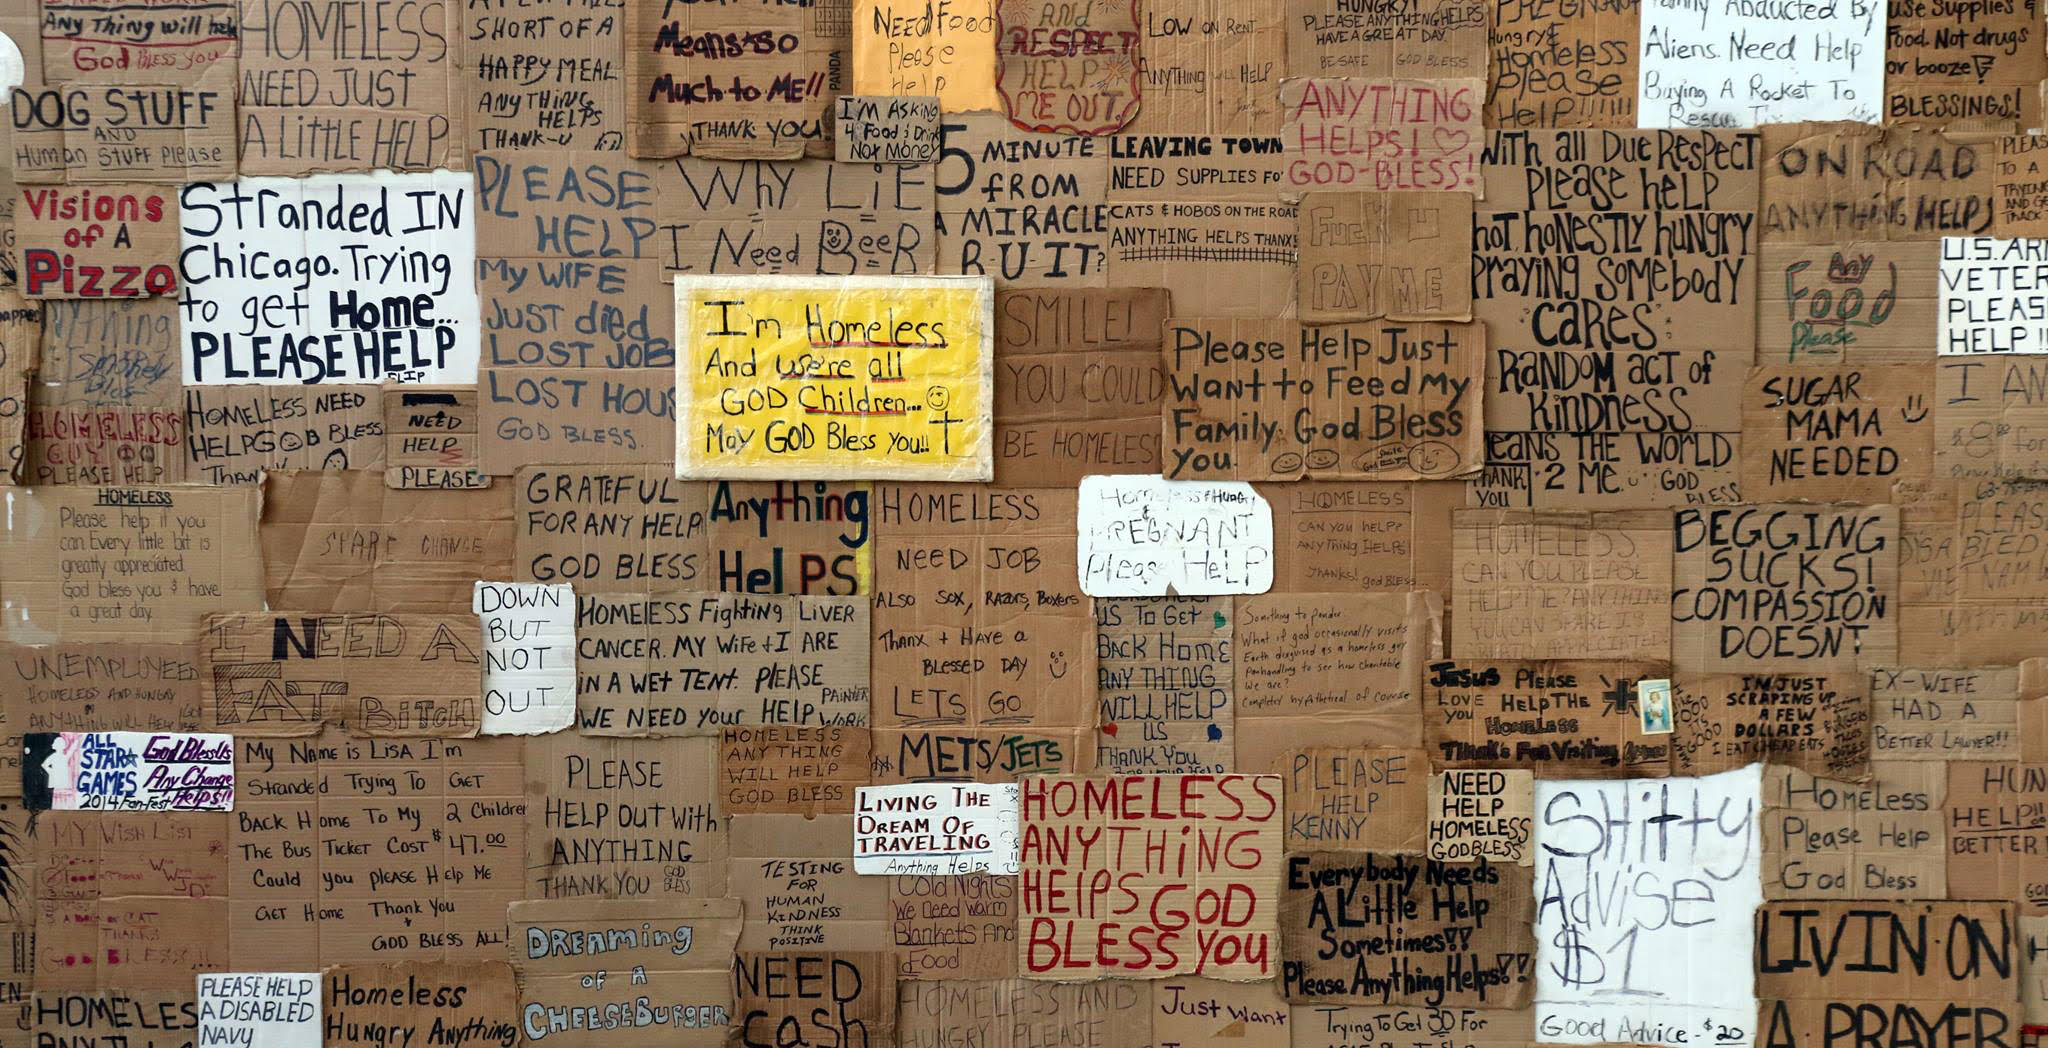 Any Thing will help
God BLESS you
DOG STUFF
AND
Human STUFF Please
HOMELESS
NEED JUST
A LITTLE HELP
SHORT OF A
HAPPY MEAL
ANYTHING
HELPS
THANK-U
Means so
Much to ME!!
THANK YOU.
PANDA
Need Food
Please
Help
I'M ASKING
4 Food & Drink
Not Money
AND
RESPECT
HELP
ME OUT.
LOW ON RENT
ANYTHING WILL HELP
HUNGRY!
PLEASE ANYTHING HELPS
HAVE A GREAT DAY.
BE SAFE GOD BLESS
ANYTHING
HELPS! ♡
GOD-BLESS!
PREGNANT
Hungry &
Homeless
please
Help!!!!!!
Family Abducted By
Aliens. Need Help
Buying A Rocket To
use Supplies &
Food. Not drugs
or booze!
BLESSINGS!
Visions
of A
Pizza
Stranded IN
Chicago. Trying
to get Home...
PLEASE HELP
PLEASE
HELP
My WIFE
JUST died
LOST JOB
LOST HOUS
GOD BLESS.
WHY LIE
I Need BeeR
5 MINUTE
FROM
A MIRACLE
R-U-IT?
LEAVING TOWN
NEED SUPPLIES FO
CATS & HOBOS ON THE ROAD
ANYTHING HELPS THANX!
Fuck U
PAY ME
With all Due Respect
Please help
hot, honestly hungry
Praying somebody
"cares"
RANDOM act of
kindness
MEANS THE WORLD
2 ME
THANK
YOU
GOD
BLESS
ON ROAD
ANYTHING HELPS
Any
Food
Please
U.S. AR
VETER
PLEAS
HELP!!
I'm Homeless
And we're all
GOD Children...
May GOD Bless you!!
SMILE!
YOU COULD
BE HOMELESS
Please Help Just
Want to Feed My
Family. God Bless
You.
SUGAR
MAMA
NEEDED
I AM
HOMELESS
GUY
PLEASE HELP
HOMELESS NEED
HELP GOD BLESS
Thank
NEED
HELP
PLEASE
HOMELESS
Please help if you
can. Every little bit is
greatly appreciated.
God bless you & have
a great day.
SPARE CHANGE
GRATEFUL
FOR ANY HELP
GOD BLESS
Anything
Helps
HOMELESS
NEED JOB
ALSO SOX, RAZORS, Boxers
Thanx + Have a
BLESSED DAY
LETS GO
METS/JETS
Homeless & Hungry
&
PREGNANT
Please HELP
HOMELESS
CAN YOU HELP?
ANYTHING HELPS!
THANKS! God BLESS...
HOMELESS.
CAN YOU PLEASE
HELP ME? ANYTHING
YOU CAN SPARE IS
GREATLY APPRECIATED
BEGGING
SUCKS!
COMPASSION
DOESN'T
UNEMPLOYEED
HOMELESS AND HUNGRY
ANYTHING WILL HELP
I NEED A
FAT BITCH
DOWN
BUT
NOT
OUT
HOMELESS Fighting LIVER
CANCER. MY WIFE + I ARE
IN A WET TENT. PLEASE
WE NEED your HELP
PAINTER
WORK
US To Get
Back Home
ANY THING
WILL HELP
US
THANK YOU
Something to ponder.
What if god occasionally visits
Earth disguised as a homeless guy
Panhandling to see how charitable
we are?
Completely hypothetical of course
JESUS Please
LOVE Help THE
you Homeless
Thanks For Visiting
I'M JUST
SCRAPING UP
A FEW
DOLLARS
I EAT CHEAP EATS
EX-WIFE
HAD A
BETTER LAWYER!!
ALL
STAR
GAMES
2014 Fan Fest
God Bless Us
Any Change
Helps!!
My Name is LISA I'm
Stranded Trying To GET
BACK Home To My 2 Children
The Bus Ticket Cost $47.00
Could you please Help Me
GET Home Thank You
+
GOD BLESS ALL!
MY WISH LIST
THANKS
GOD BLESS!!
PLEASE
HELP OUT With
ANYTHING
THANK YOU GOD BLESS
HOMELESS
ANYTHING
WILL HELP
GOD BLESS
TESTING
FOR
HUMAN
KINDNESS
THINK
POSITIVE
LIVING THE
DREAM OF
TRAVELING
Anything Helps
Cold Nights
We need warm
Blankets And
Food
HOMELESS
ANYTHING
HElPS GOD
BLESS YOU
PLEASE
HELP
KENNY
NEED
HELP
HOMELESS
GOD BLESS
Everybody Needs
A Little Help
Sometimes!!
Please Anything Helps!!
SHitty
Advise
$1
Good Advice - $20
Homeless
Please Help
God Bless
HUN
HELP!!
BETTER
LIVIN' ON
A PRAYER
HOMELES
PLEASE HELP
A DISABLED
NAVY
Homeless
Hungry Anything
DREAMING
OF A
CHEESEBURGER
NEED
Cash
HOMELESS AND
HUNGRY PLEASE
Just Want
Trying To Get 30 For